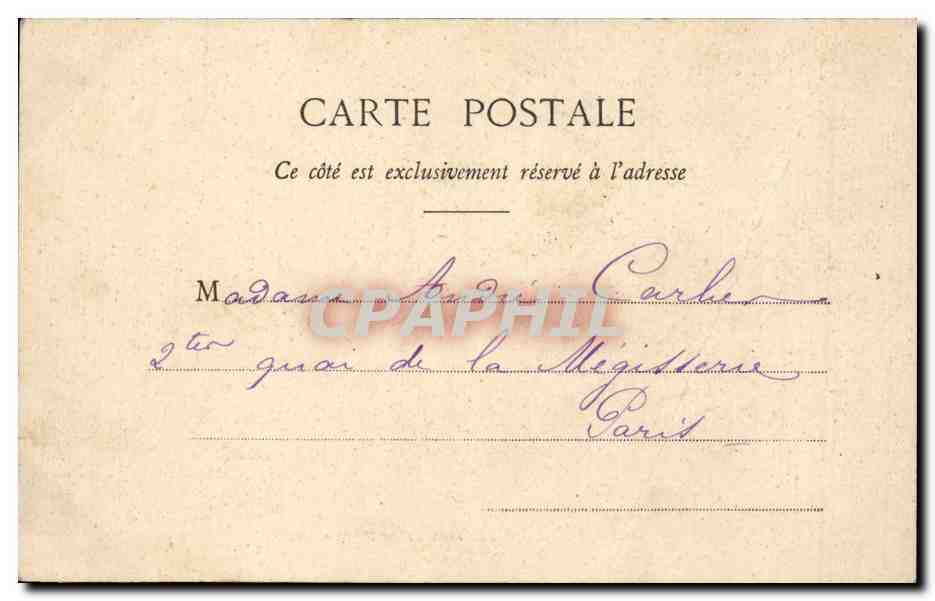 CARTE POSTALE
Ce côté est exclusivement réservé à l'adresse
Madame André Carlier
CPAPHIL
2ter quai de la Mégisserie
Paris